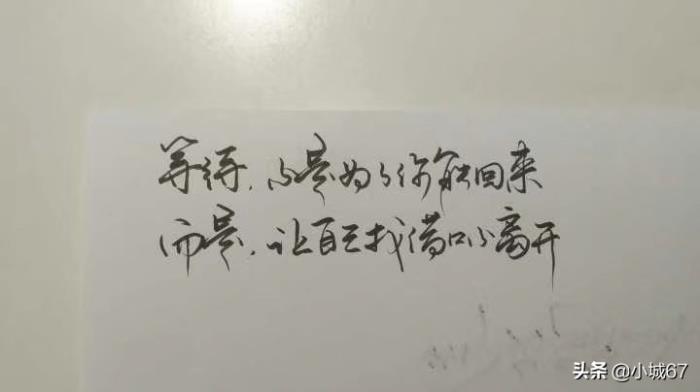 等待，不是为了你能回来
而是，让自己找借口不离开
头条 @小城67